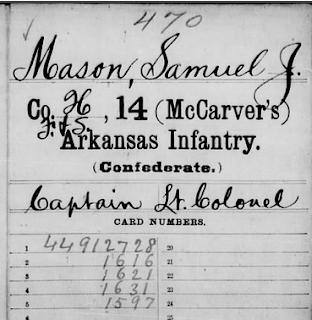 470
Mason, Samuel J.
Co. H, 14 (McCarver's)
F. & S.
Arkansas Infantry.
(Confederate.)
Captain Lt. Colonel
CARD NUMBERS.
1 44912728 20
2 1616 21
3 1621 22
4 1631 23
5 1597 24
25